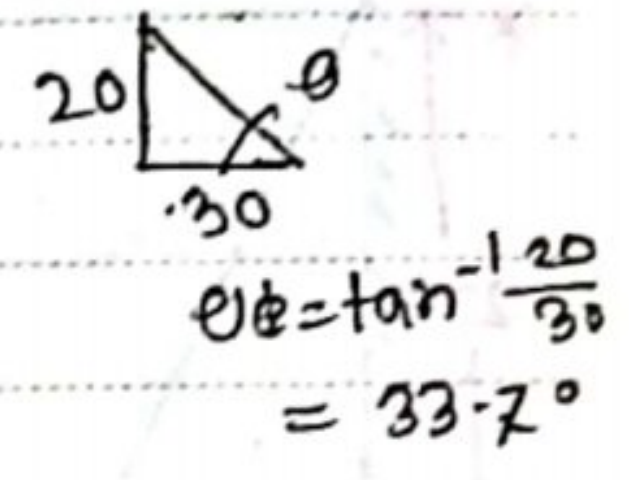 20
θ
30
= tan⁻¹ 20/30
= 33.7°